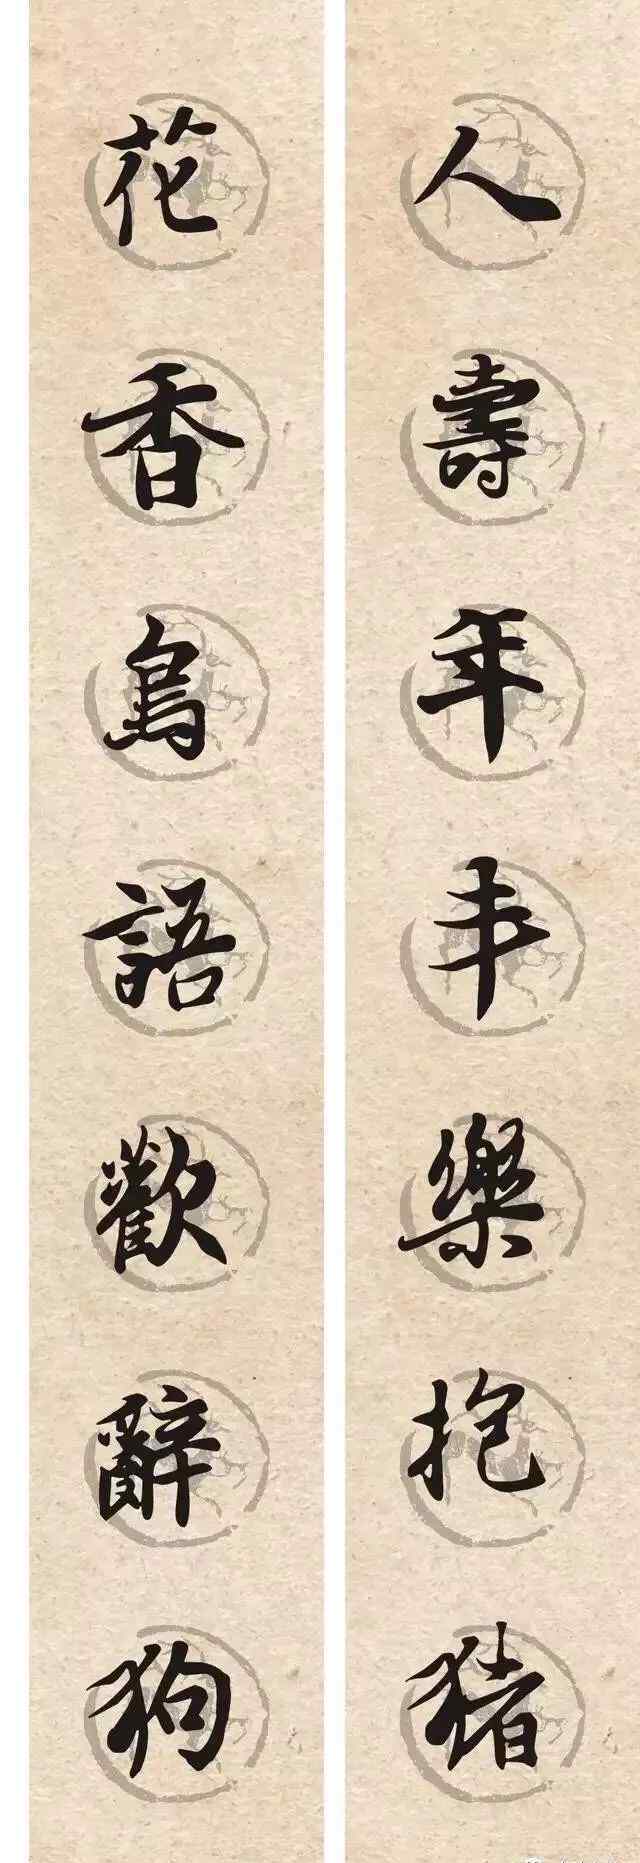 人壽年丰樂抱猪
花香鳥語歡辭狗